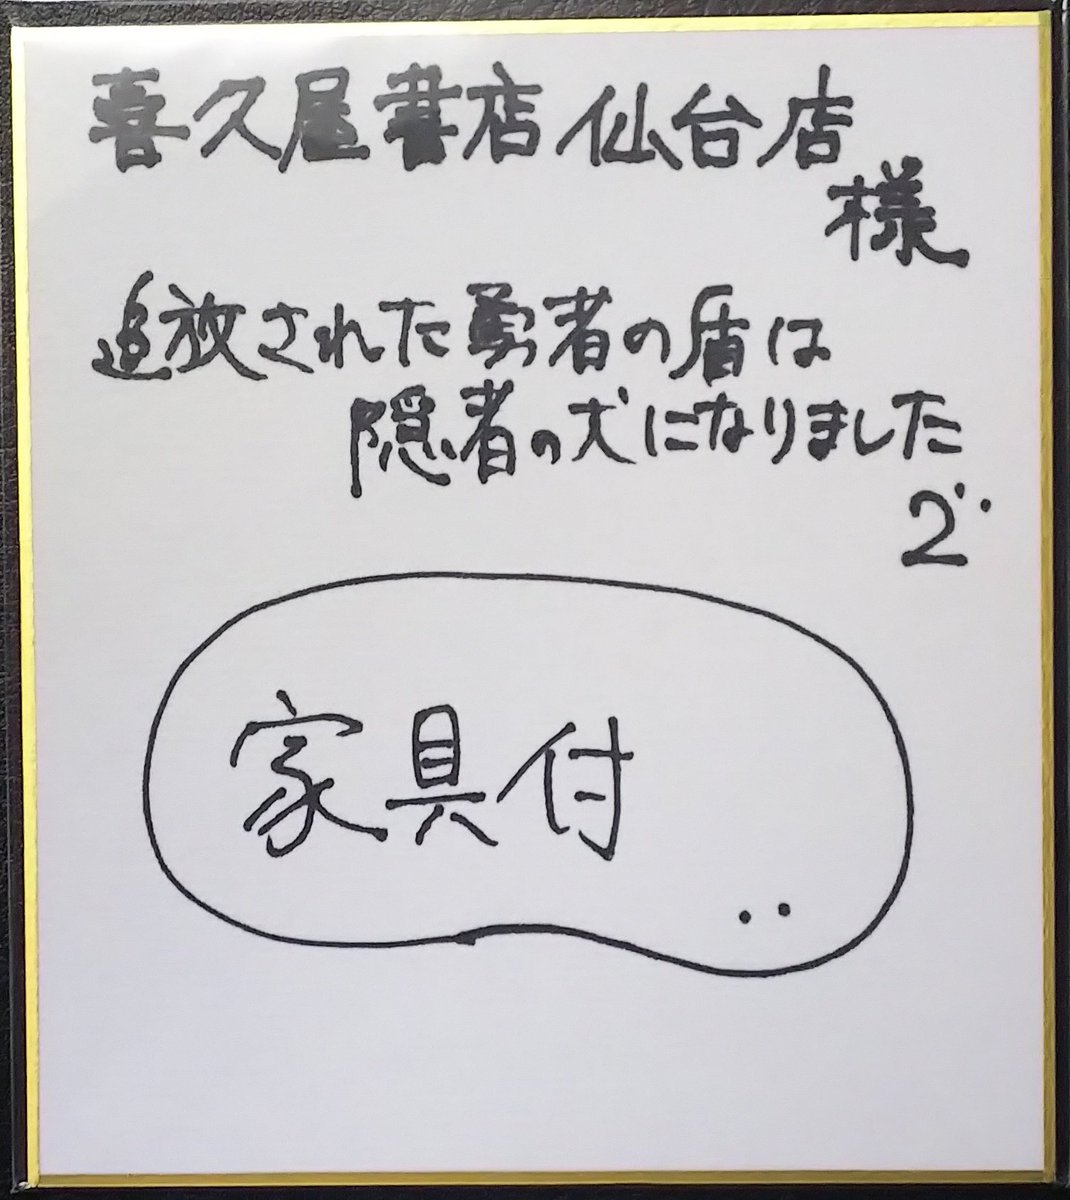 喜久屋書店 仙台店
様
追放された勇者の盾は
隠者の犬になりました
2
家具付